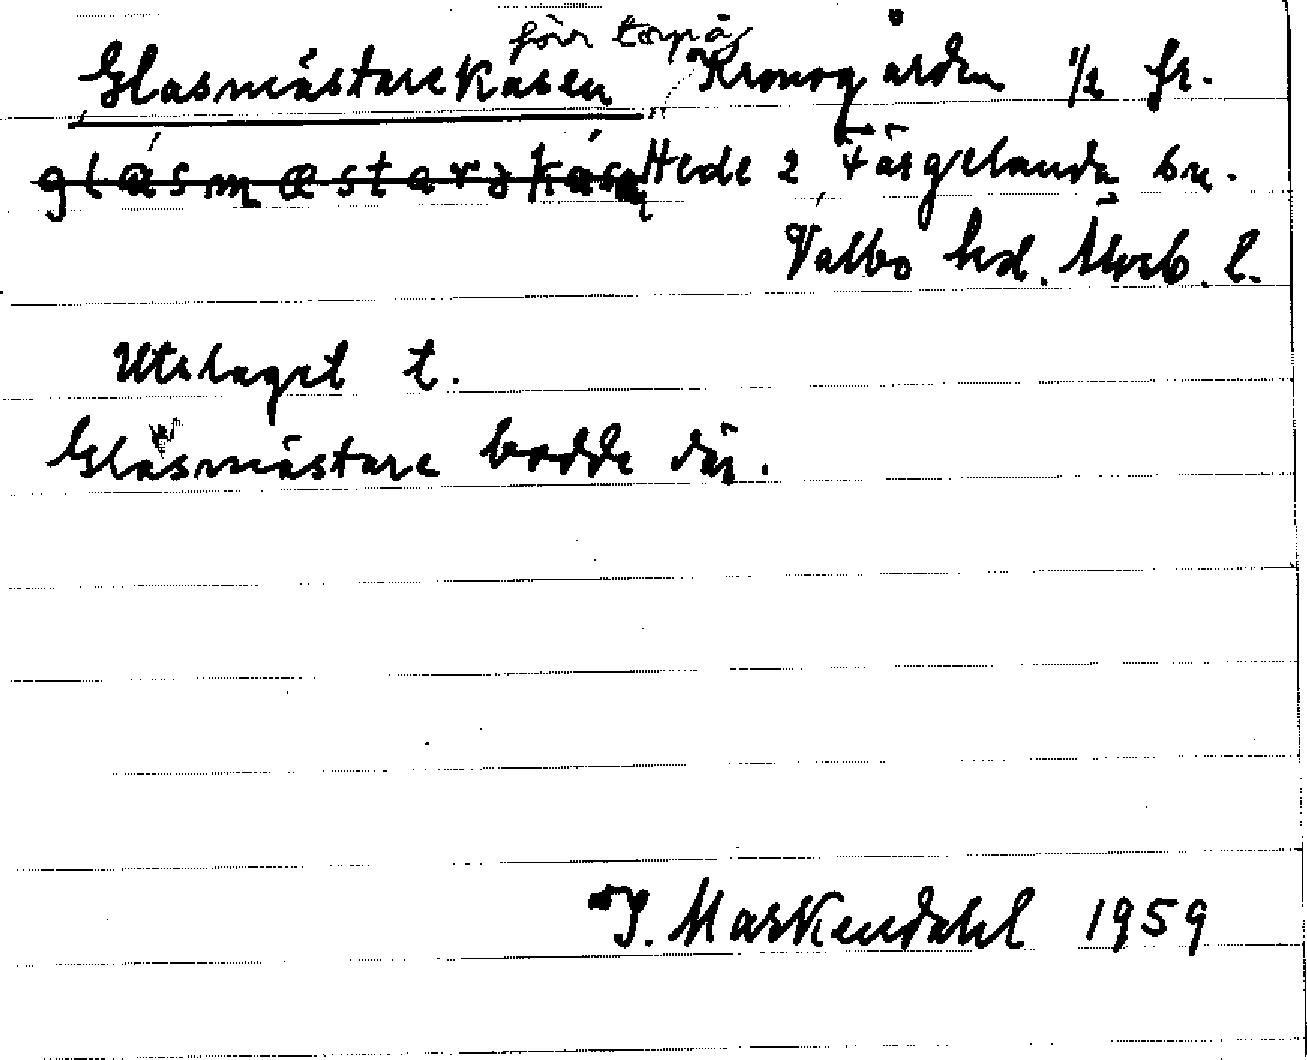 förr torp å
Glasmästarekasen, Kronogården 1/2 fr.
Hede 2 Färgelanda sn.
Valbo hd. Älvsb. l.
Utslaget t.
Glasmästare bodde där.
I. Markendahl 1959